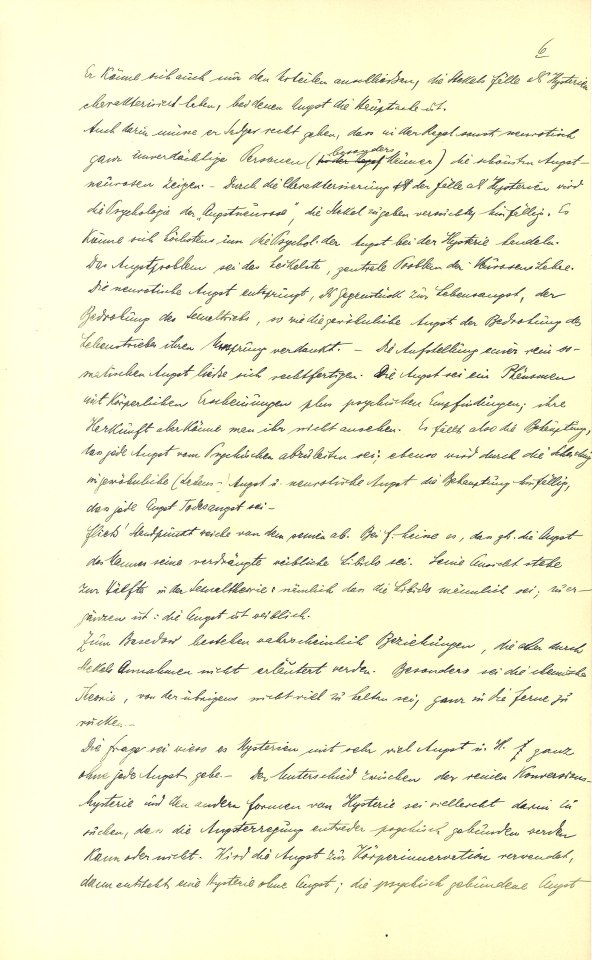 6
Er könne sich auch nur den Urteilen anschließen, die Stekels Fälle als Hysterien
charakterisiert haben, bei denen Angst die Hauptsache ist.
Auch darin müsse er Sadger recht geben, dass in der Regel sonst neurotisch
besonders
ganz unverdächtige Personen (in der Regel Männer) die schönsten Angst-
neurosen zeigen. – Durch die Charakterisierung der Fälle als Hysterien wird
die Psychologie der „Angstneurose", die Stekel zu geben versuchte, hinfällig. Es
könne sich höchstens um die Psychol. der Angst bei der Hysterie handeln.
Das Angstproblem sei das heikelste, zentrale Problem der Neurosenlehre.
Die neurotische Angst entspringt, als Gegenstück zur Lebensangst, der
Bedrohung des Sexualtriebs, so wie die gewöhnliche Angst der Bedrohung des
Lebenstriebes ihren Ursprung verdankt. – Die Aufstellung einer rein so-
matischen Angst ließe sich rechtfertigen. Die Angst sei ein Phänomen
mit körperlichen Erscheinungen plus psychischen Empfindungen; ihre
Herkunft aber könne man ihr nicht ansehen. Es fiele also die Behauptung,
dass jede Angst vom Psychischen abzuleiten sei; ebenso wird durch die Scheidung
in gewöhnliche (Lebens-) Angst u. neurotische Angst die Behauptung hinfällig,
dass jede Angst Todesangst sei –
Fließ' Standpunkt weiche von dem seinen ab. Bei F. heiße es, dass gl. die Angst
des Mannes seine verdrängte weibliche Libido sei. Seine Ansicht stehe
zur Hälfte in der Sexualtheorie: nämlich dass die Libido männlich sei; zu er-
gänzen ist: die Angst ist weiblich.
Zum Basedow bestehen wahrscheinlich Beziehungen, die aber durch
Stekels Annahmen nicht erläutert werden. Besonders sei die chemische
Theorie, von der übrigens nicht viel zu halten sei, ganz in die Ferne zu
rücken. –
Die Frage sei wieso es Hysterien mit sehr viel Angst u. H. ganz
ohne jede Angst gebe – Der Unterschied zwischen der reinen Konversions-
hysterie und den andern Formen von Hysterie sei vielleicht darin zu
suchen, dass die Angsterregung entweder psychisch gebunden werden
kann oder nicht. Wird die Angst zur Körperinnervation verwendet,
dann entsteht eine Hysterie ohne Angst; die psychisch gebundene Angst